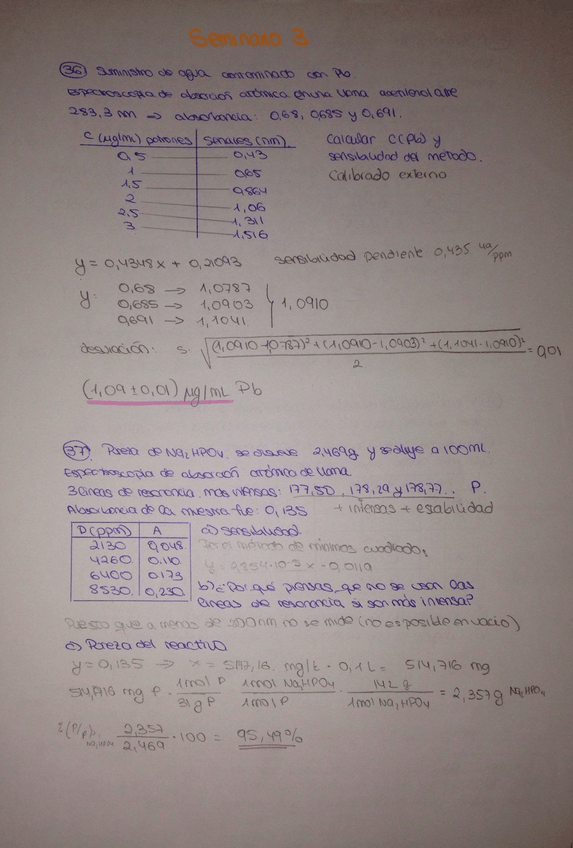 Seminario 3
36 Suministro de agua contaminado con Pb.
Espectroscopia de absorción atómica en una llama acetileno/aire
283,3 nm → absorbancia: 0,68, 0,685 y 0,691.
C (μg/mL) patrones señales (nm). Calcular C(Pb) y
0,5 0,43 sensibilidad del método.
1 0,65 Calibrado externo
1,5 0,864
2 1,06
2,5 1,311
3 1,516
y = 0,4348x + 0,21093 sensibilidad pendiente 0,435 ua/ppm
y: 0,68 → 1,0787
0,685 → 1,0903 1,0910
0,691 → 1,1041
desviación: s: √((1,0910-1,0787)² + (1,0910-1,0903)² + (1,1041-1,0910)²)/2 = 0,01
(1,09 ± 0,01) μg/mL Pb
37 Pureza de Na2HPO4. se disuelve 2,469g y se diluye a 100mL.
Espectroscopia de absorción atómica de llama
3 líneas de resonancia más intensas: 177,50, 178,29 y 178,77.. P.
Absorbancia de la muestra fue: 0,135 + intensas + estabilidad
D (ppm) A a) sensibilidad
2130 0,048 método de mínimos cuadrados
4260 0.110 0,0110
6400 0.173 b) ¿Por qué piensas, que no se usan las
8530. 0,230 líneas de resonancia si son más intensa?
Puesto que a menos de 200nm no se mide (no es posible en vacío)
c) Pureza del reactivo
y = 0,135 → x = 5147,16. mg/L · 0,1L = 514,716 mg
514,716 mg P · 1mol P/31g P · 1mol Na2HPO4/1mol P · 142 g/1mol Na2HPO4 = 2,357g Na2HPO4
(P/P) Na2HPO4 2,357/2,469 · 100 = 95,49%